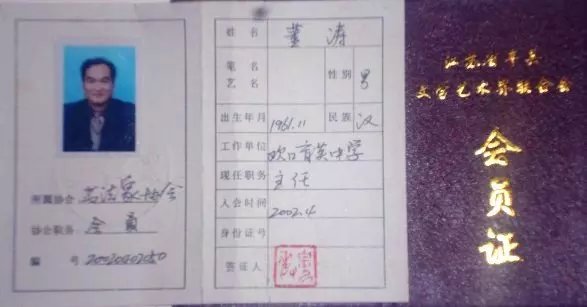 所属协会 书法家协会
协会职务 会员
编 号 2002040250
姓名 董涛
笔名
艺名
性别 男
出生年月 1961.11
民族 汉
工作单位 欢口育英中学
现任职务 主任
入会时间 2002.4
身份证号
签证人
江苏省丰县
文学艺术界联合会
会员证